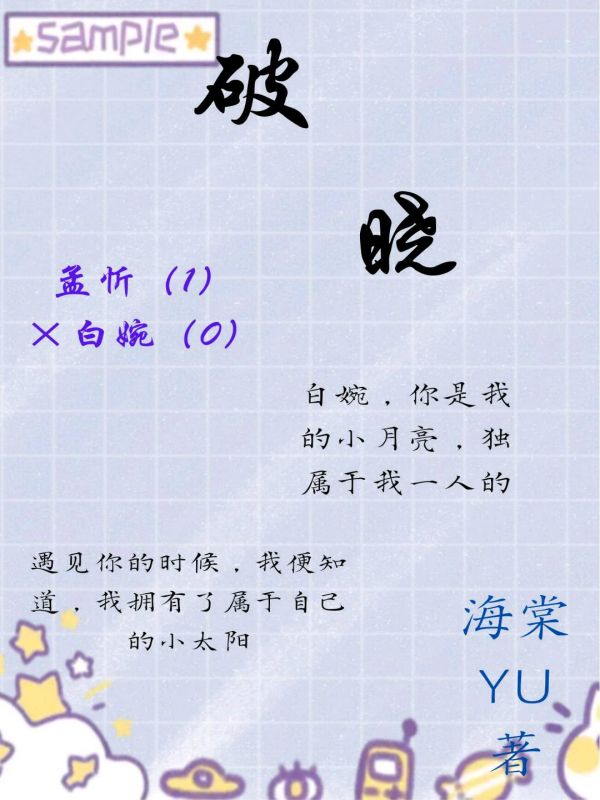 sample
破
晓
孟忻（1）
×白婉（0）
白婉，你是我
的小月亮，独
属于我一人的
遇见你的时候，我便知
道，我拥有了属于自己
的小太阳
海棠
YU
著